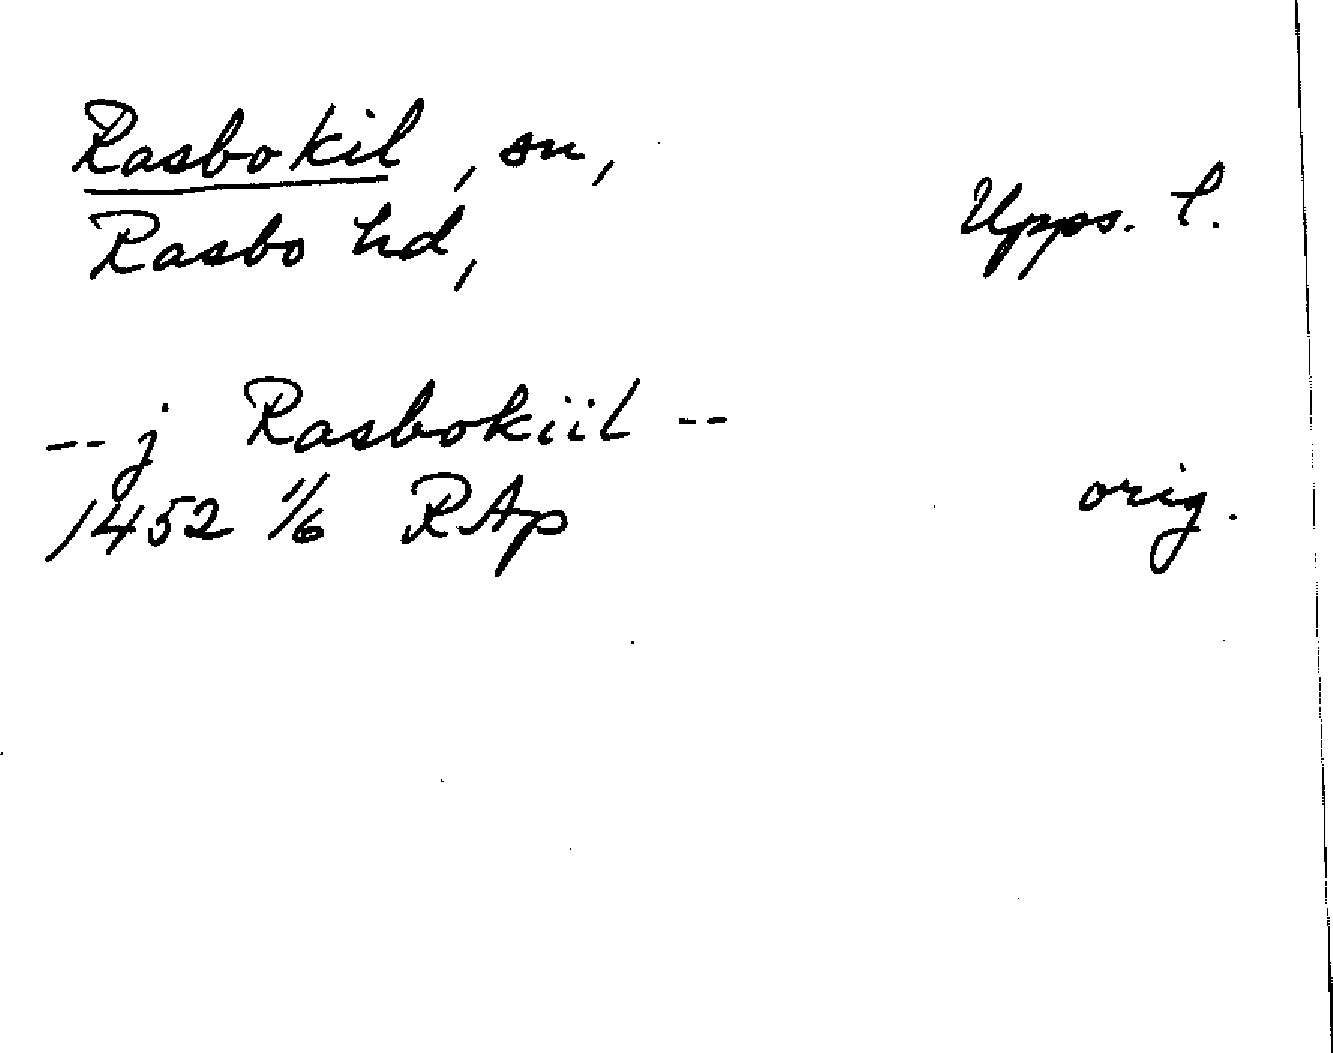 Rasbokil, sn,
Rasbo hd,
Upps. l.
-- j Rasbokiil --
1452 1/6 RAp
orig.